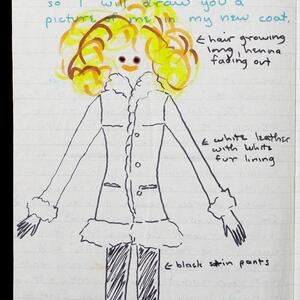 so I will draw you a
picture of me in my new coat.
← hair growing
long, henna
fading out
← white leather
with white
fur lining
← black skin pants